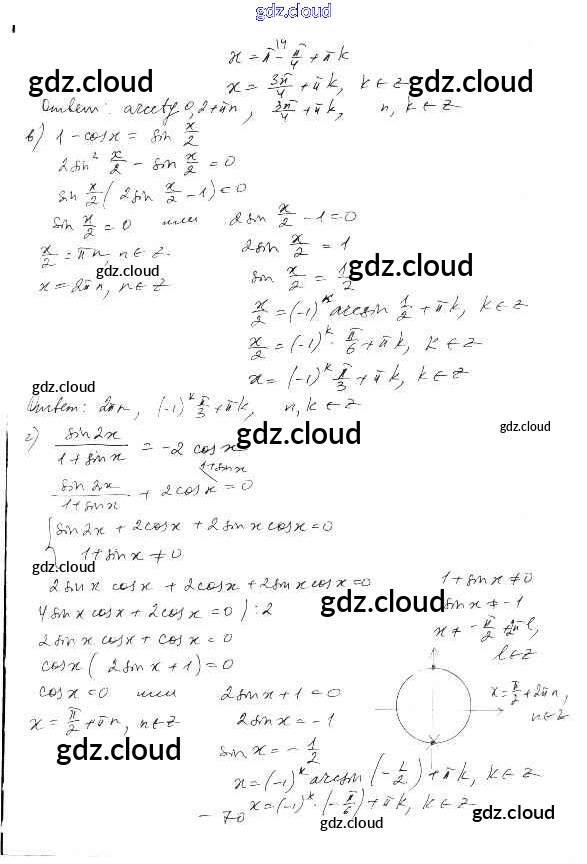 gdz.cloud
14
x = π - π/4 + πk
gdz.cloud
x = 3π/4 + πk, k ∈ Z
gdz.cloud
Ответ: arcctg 0,2 + πn, 3π/4 + πk, n, k ∈ Z
в) 1 - cos x = sin x/2
2sin² x/2 - sin x/2 = 0
sin x/2 (2sin x/2 - 1) = 0
sin x/2 = 0 или 2sin x/2 - 1 = 0
x/2 = πn, n ∈ Z 2sin x/2 = 1
gdz.cloud
gdz.cloud
x = 2πn, n ∈ Z sin x/2 = 1/2
x/2 = (-1)^k arcsin 1/2 + πk, k ∈ Z
x/2 = (-1)^k · π/6 + πk, k ∈ Z
x = (-1)^k π/3 + πk, k ∈ Z
gdz.cloud
Ответ: 2πn, (-1)^k π/3 + πk, n, k ∈ Z
gdz.cloud
gdz.cloud
г) sin2x/(1 + sin x) = -2 cos x
1+sinx
sin2x/(1 + sin x) + 2cos x = 0
sin2x + 2cosx + 2sinx cosx = 0
1 + sin x ≠ 0
gdz.cloud
2sin x cosx + 2cosx + 2sinx cosx = 0
1 + sin x ≠ 0
gdz.cloud
4sinx cosx + 2cosx = 0 ) : 2
sin x ≠ -1
2sinx cosx + cosx = 0
x ≠ -π/2 + 2πl,
l ∈ Z
cosx ( 2sin x + 1) = 0
cosx = 0 или 2sin x + 1 = 0
x = π/2 + 2πn,
n ∈ Z
x = π/2 + πn, n ∈ Z 2sinx = -1
gdz.cloud
sin x = -1/2
gdz.cloud
x = (-1)^k arcsin (-1/2) + πk, k ∈ Z
x = (-1)^k · (-π/6) + πk, k ∈ Z
- 70
gdz.cloud
gdz.cloud